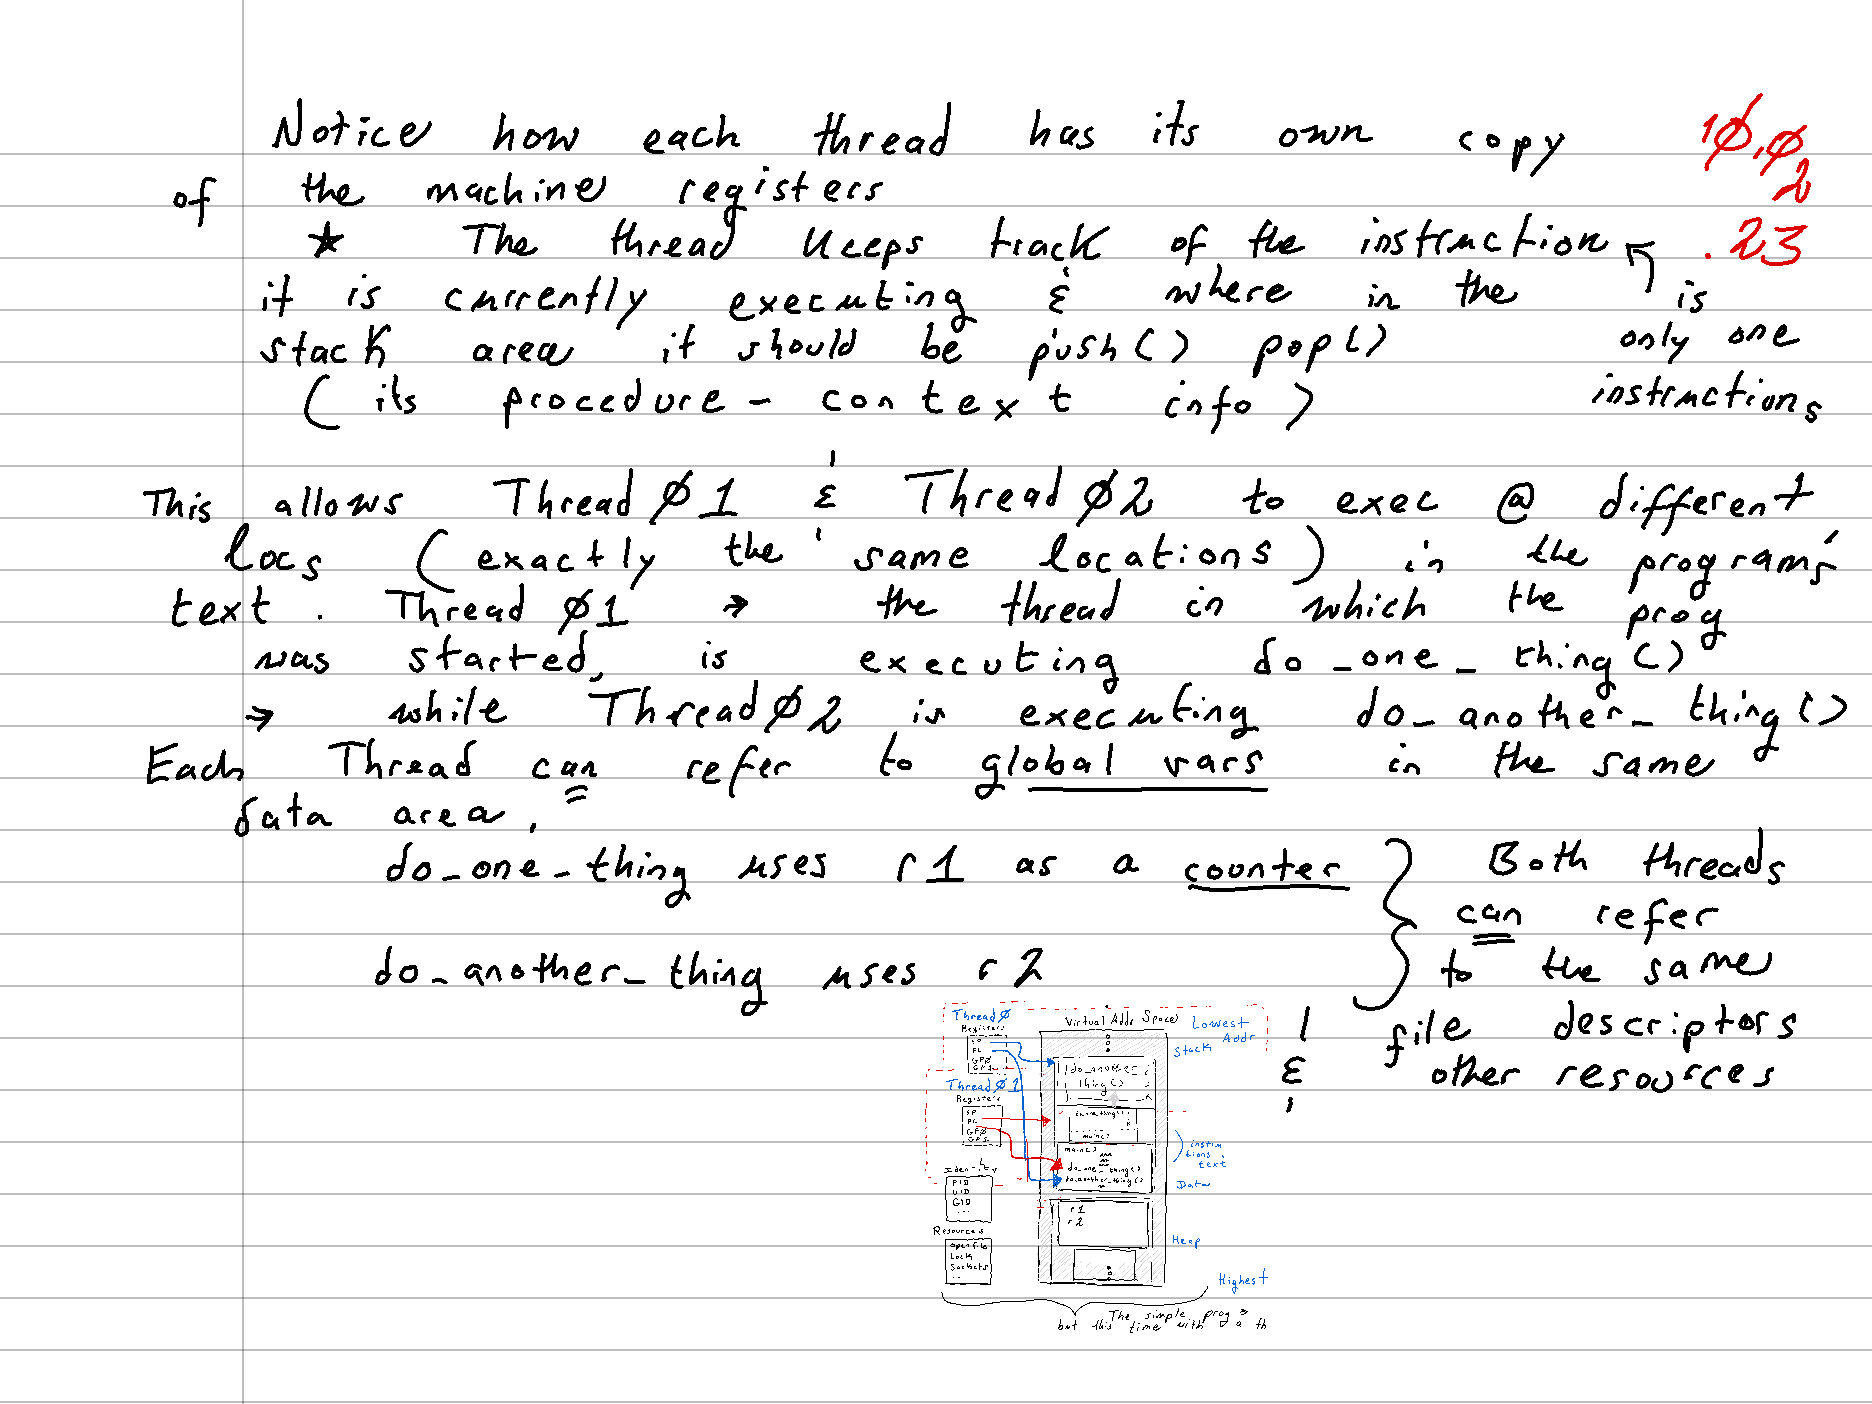 Notice how each thread has its own copy 1Ø,Ø2
of the machine registers
★ The thread keeps track of the instruction .23
it is currently executing & where in the is
stack area it should be push() pop() only one
(its procedure - context info) instructions
This allows Thread Ø1 & Thread Ø2 to exec @ different
locs (exactly the same locations) in the program's
text. Thread Ø1 → the thread in which the prog
was started, is executing do_one_thing()
→ while Thread Ø2 is executing do_another_thing()
Each Thread can refer to global vars in the same
data area.
do_one_thing uses r1 as a counter
Both threads
can refer
do_another_thing uses r2
to the same
& file descriptors
other resources
Thread Ø
Registers
SP
PC
GPØ
GP1
Thread Ø1
Registers
SP
PC
GPØ
GP1
Identity
PID
UID
GID
...
Resources
open file
Lock
Sockets
Virtual Addr Space
Lowest
Addr
Stack
do_another_
thing()
main()
main()
do_one_thing()
do_another_thing()
instru
ctions
text
Data
r1
r2
Heap
Highest
The simple prog
but this time with a th